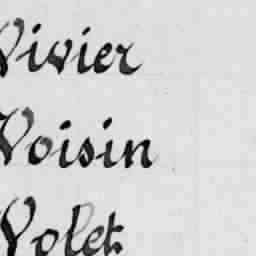 Vivier
Voisin
Volet